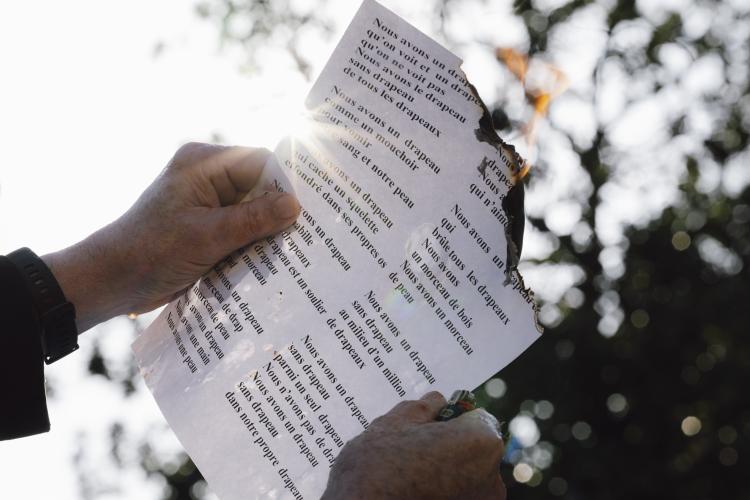 Nous avons un drapeau
qu'on voit et un
qu'on ne voit pas
Nous avons le drapeau
sans drapeau
de tous les drapeaux
Nous avons un drapeau
comme un mouchoir
pour vomir
sang et notre peau
avons un drapeau
qui cache un squelette
effondré dans ses propres os
avons un drapeau
drapeau est un soulier de drapeaux
de peau
Nous
qui n'aim
Nous avons un
qui
brûle tous les drapeaux
Nous avons
un morceau de bois
Nous avons un morceau
avons un drapeau
morceau de drap
morceau de peau
avons un drapeau
Nous avons une main
Nous avons une peau
Nous avons un drapeau
sans drapeau
au milieu d'un million
Nous avons un drapeau
sans drapeau
parmi un seul drapeau
Nous n'avons pas de
Nous avons un drapeau
sans drapeau
dans notre propre drapeau